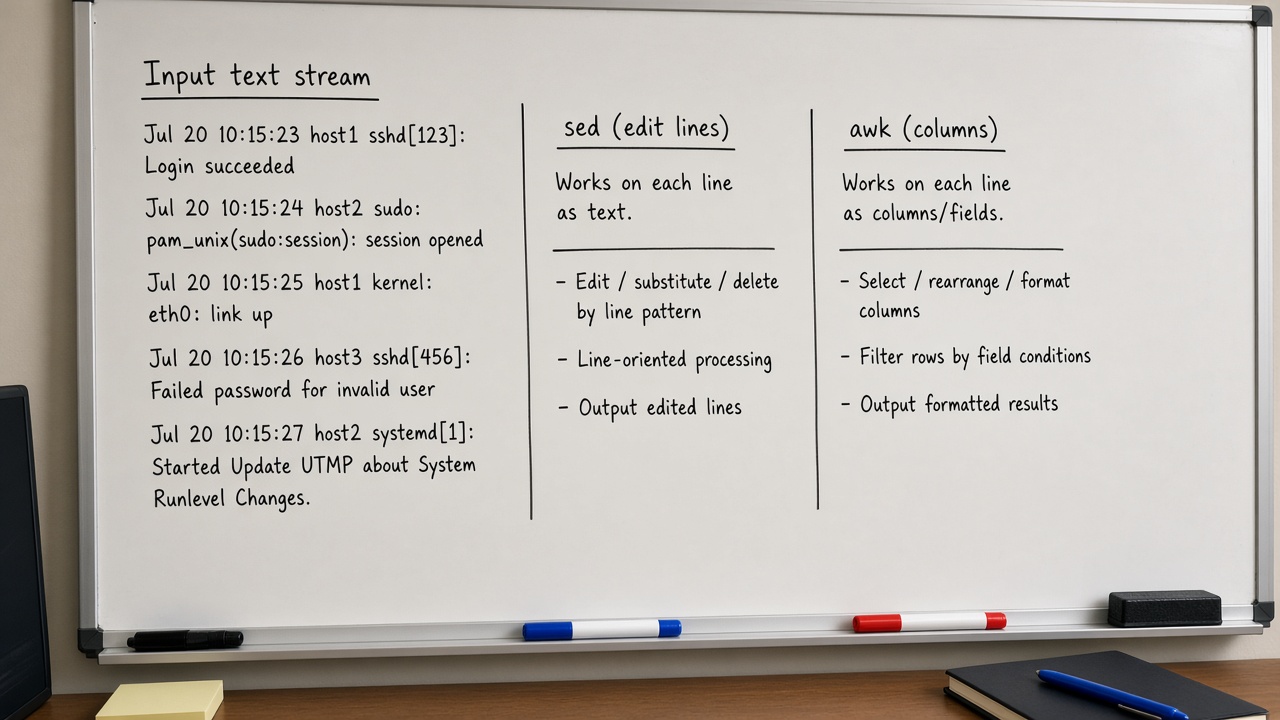 Input text stream
Jul 20 10:15:23 host1 sshd[123]:
Login succeeded
Jul 20 10:15:24 host2 sudo:
pam_unix(sudo:session): session opened
Jul 20 10:15:25 host1 kernel:
eth0: link up
Jul 20 10:15:26 host3 sshd[456]:
Failed password for invalid user
Jul 20 10:15:27 host2 systemd[1]:
Started Update UTMP about System
Runlevel Changes.
sed (edit lines)
Works on each line
as text.
- Edit / substitute / delete
by line pattern
- Line-oriented processing
- Output edited lines
awk (columns)
Works on each line
as columns/fields.
- Select / rearrange / format
columns
- Filter rows by field conditions
- Output formatted results